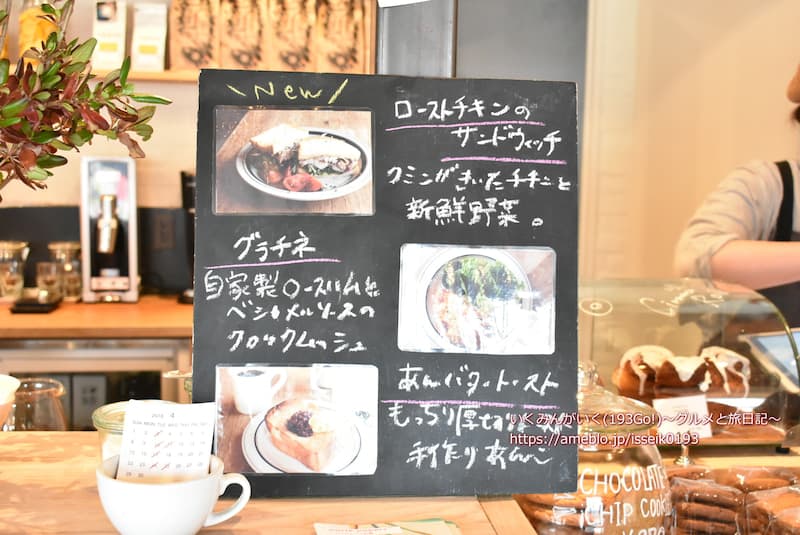 New
ローストチキンの
サンドウィッチ
クミンがきいたチキンと
新鮮野菜。
グラチネ
自家製ロースハムと
ベシャメルソースの
クロックムッシュ
あんバタートースト
もっちり厚切り
手作りあんこ
いくみんがいく(193Go!)～グルメと旅日記～
https://ameblo.jp/isseik0193
CHOCOLATE
CHIP COOKIE
2018 4
SUN MON TUE WED THU FRI SAT